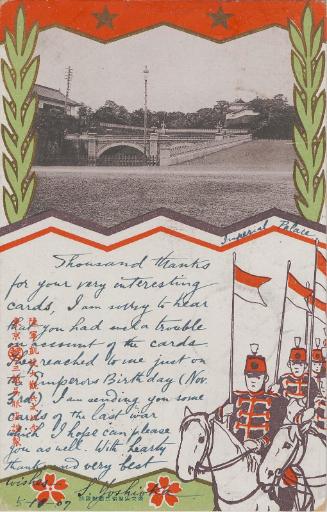 Imperial Palace
Thousand thanks
for your very interesting
cards, I am sorry to hear
that you had such a trouble
on account of the cards
They reached to me just on
the Emperors Birthday (Nov.
3rd). I am sending you some
cards of the last war
which I hope can please
you as well. With hearty
thanks and very best
wishes S. Yoshioka
5-11-07